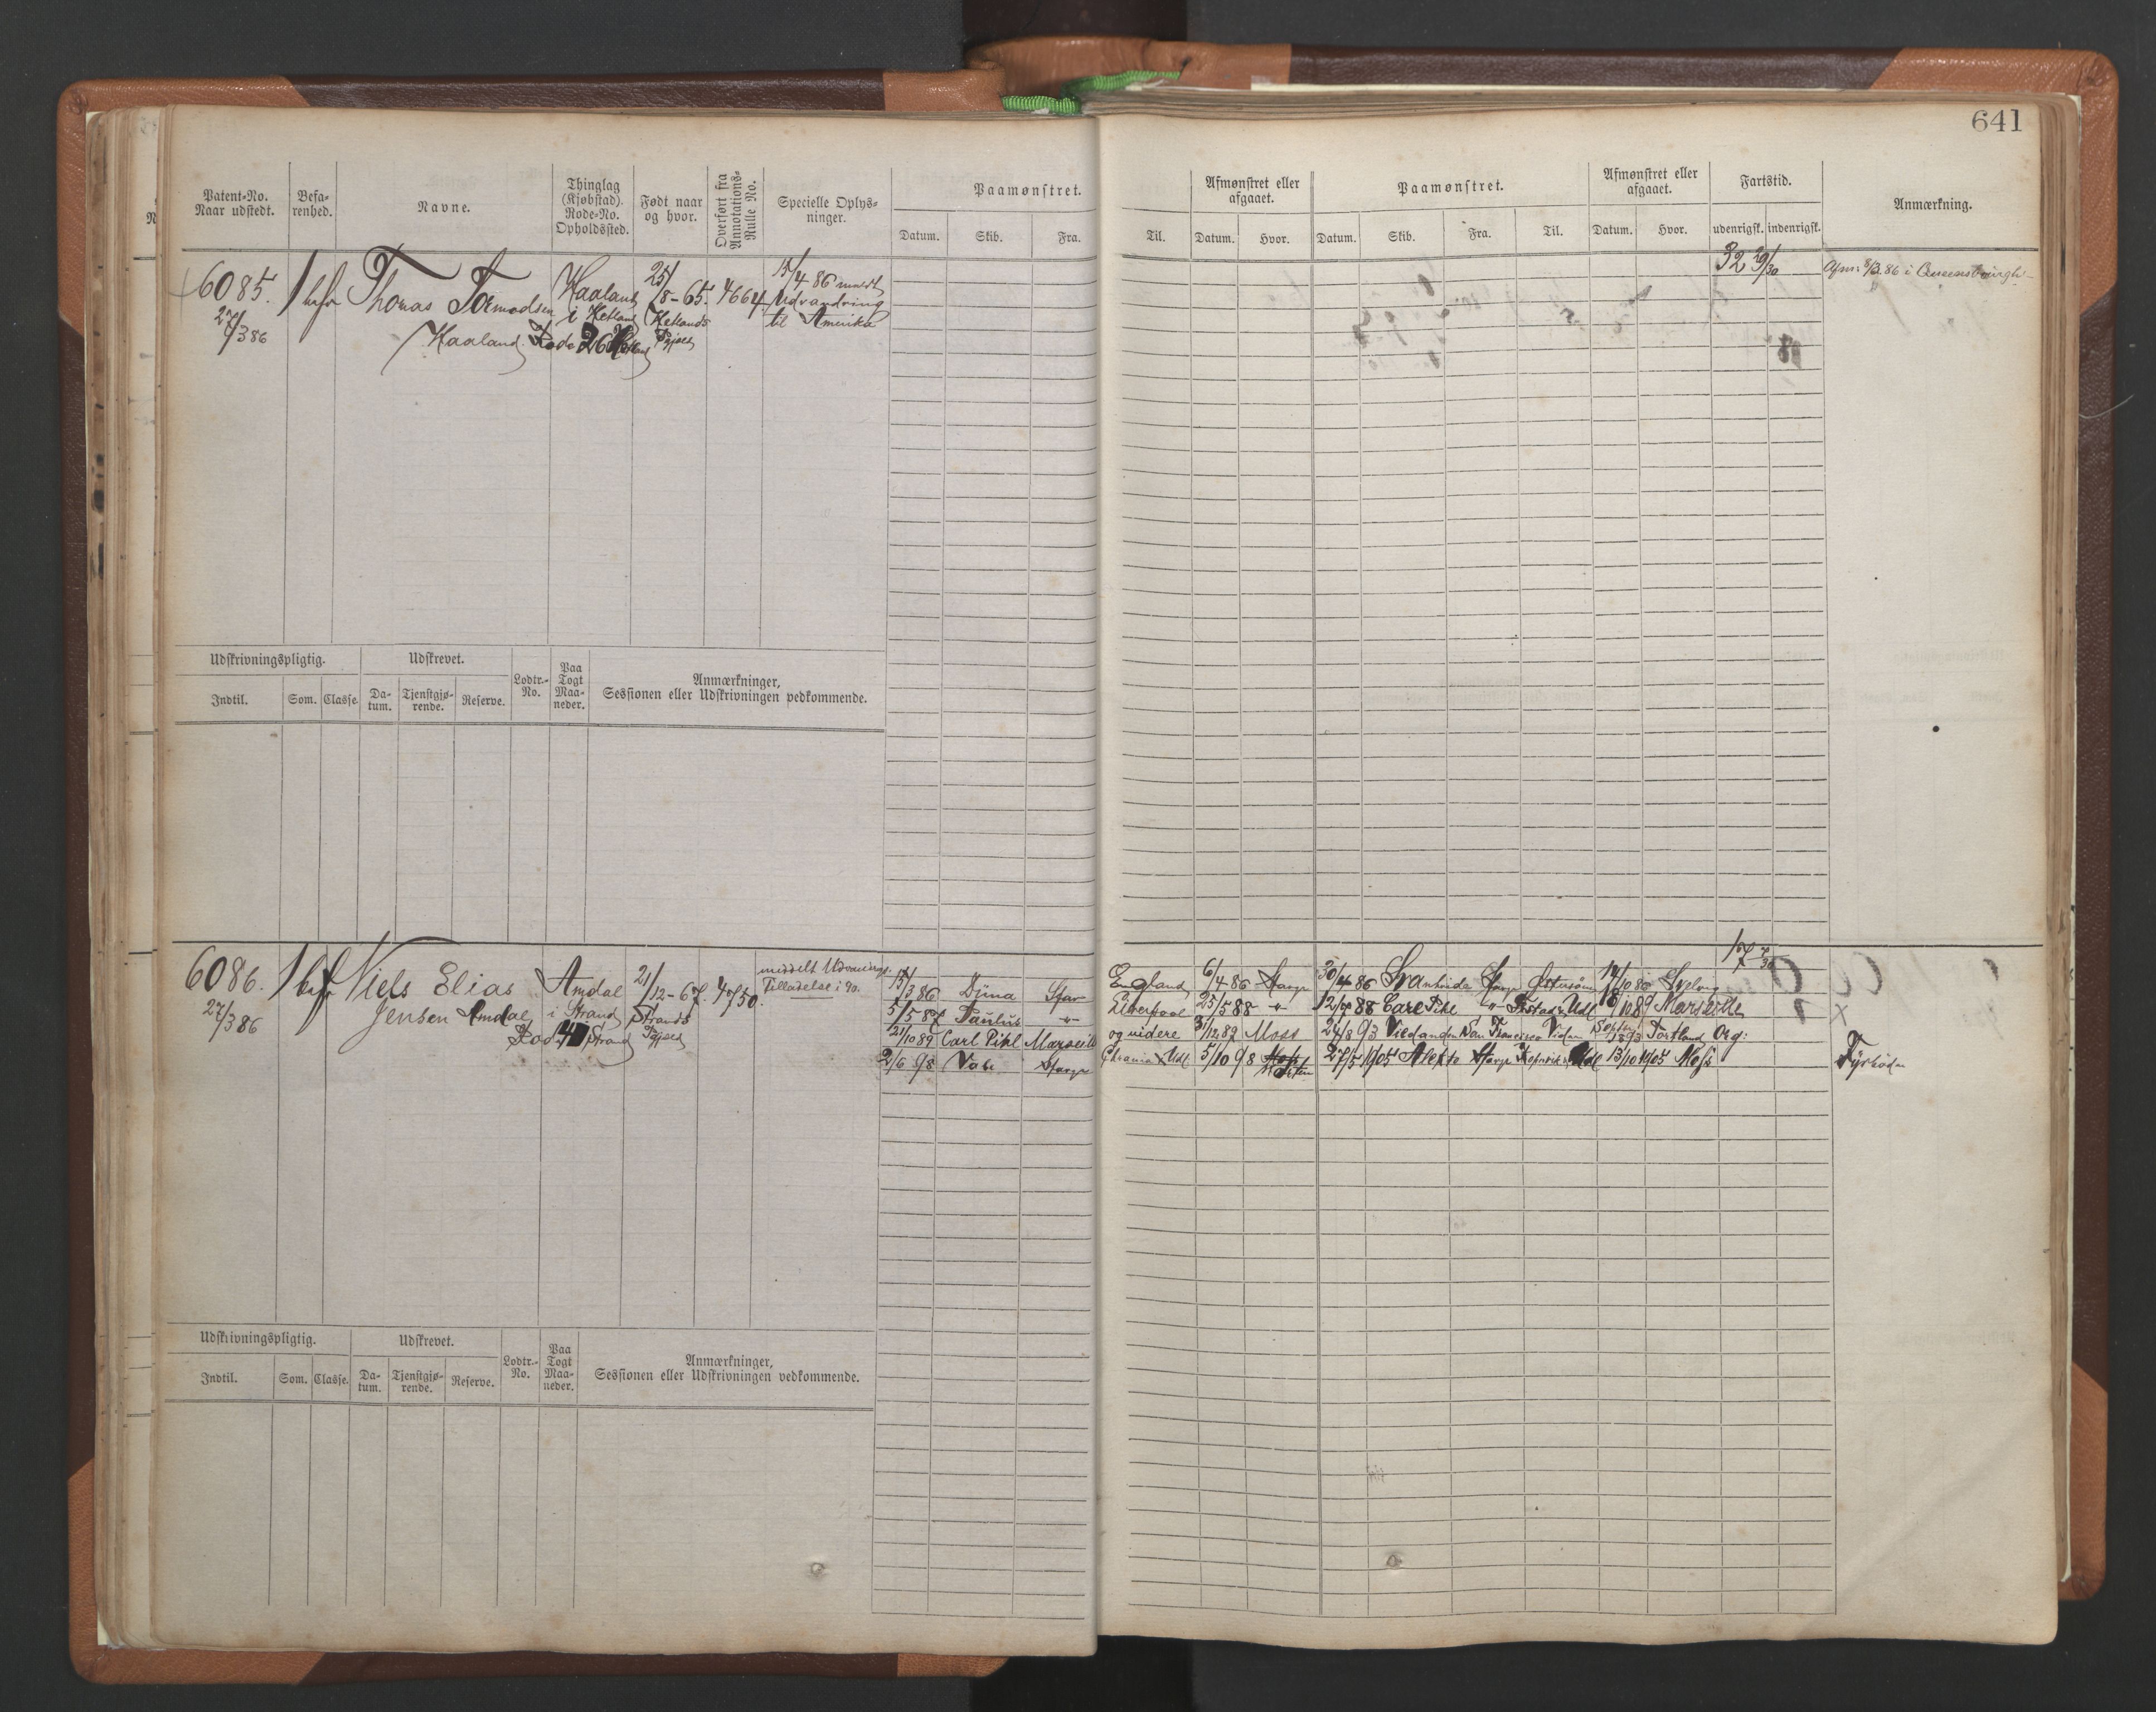 641
Patent-No.
Naar udstedt.
Befa-
renhed.
Navne.
Thinglag
(Kjøbstad).
Rode-No.
Opholdssted.
Født naar
og hvor.
Overført fra
Annotations-
Rulle No.
Specielle Oplys-
ninger.
Paamønstret.
Datum. Skib. Fra.
Til.
Afmønstret eller
afgaaet.
Datum. Hvor.
Paamønstret.
Datum. Skib. Fra. Til.
Afmønstret eller
afgaaet.
Datum. Hvor.
Fartstid.
udenrigsk. indenrigsk.
Anmærkning.
6085. 1 bef Thomas Tormodsen Haaland 25/8-65. 4664 15/4 86 meldt
27/3 86 Haaland i Hetland Hetlands Udvandring
Rode 26 Pgjæld til Amerika
32 29/30 Afm: 8/3.86 i
Udskrivningspligtig. Udskrevet. Lodtr.-
No. Paa
Togt
Maa-
neder. Anmærkninger,
Sessionen eller Udskrivningen vedkommende.
Indtil. Som. Classe. Da-
tum. Tjenstgjø-
rende. Reserve.
6086. 1 bef Niels Elias Amdal 21/12-67. 4750. meddelt Udvandrings-
27/3 86 Jensen Amdal i Strand Strands Tilladelse i 90.
Rode Strand Pgjæld
15/3 86 Dina Stav England 6/4 86 Stavgr 30/4 86 Stavgr 14/10 86 Svelvig 17
5/5 87 Paulus -"- Liverpool 25/5 88 -"- 12/7 88 Carl Pihl -"- Udl 18/10 89 Marseille x
21/10 89 Carl Pihl Marseille og videre 3/12 89 Moss 24/8 93 San Francisco Sept 1893 Portland Org:
2/6 98 Stavgr Chrania x Udl 5/10 98 27/5 1905 Alekto Stavgr Udl 13/10 1905 Moss Fyrbøder
Udskrivningspligtig. Udskrevet. Lodtr.-
No. Paa
Togt
Maa-
neder. Anmærkninger,
Sessionen eller Udskrivningen vedkommende.
Indtil. Som. Classe. Da-
tum. Tjenstgjø-
rende. Reserve.